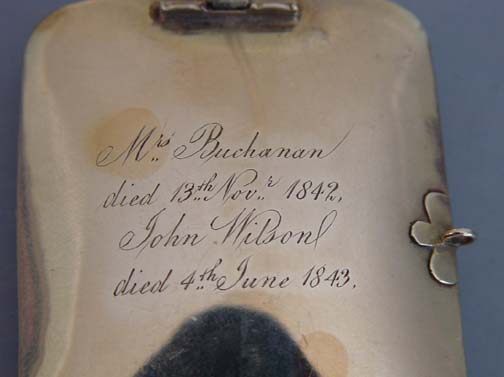 Mrs Buchanan
died 13th Novr 1842,
John Wilson
died 4th June 1843.